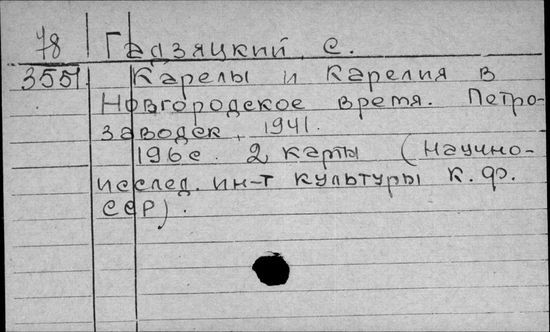 78 Гадзяцкий, С.
3551. Карелы и Карелия в
Новгородское время. Петро-
заводск, 1941.
196 с. 2 карты (Научно-
исслед. ин-т культуры К.Ф.
ССР).